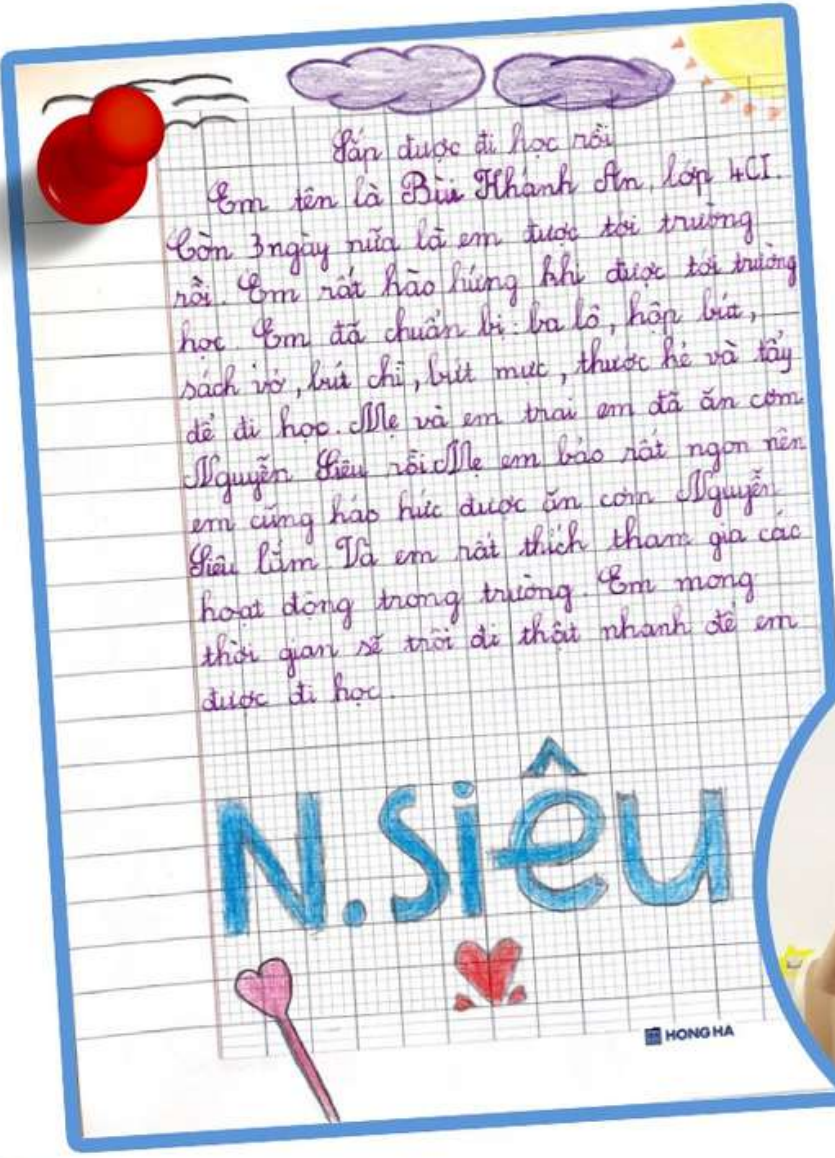 Sắp được đi học rồi
Em tên là Bùi Khánh An, lớp 4CI.
Còn 3 ngày nữa là em được tới trường
rồi. Em rất hào hứng khi được tới trường
học. Em đã chuẩn bị: ba lô, hộp bút,
sách vở, bút chì, bút mực, thước kẻ và tẩy
để đi học. Mẹ và em trai em đã ăn cơm
Nguyễn Siêu rồi. Mẹ em bảo rất ngon nên
em cũng háo hức được ăn cơm Nguyễn
Siêu lắm. Và em rất thích tham gia các
hoạt động trong trường. Em mong
thời gian sẽ trôi đi thật nhanh để em
được đi học.
N.Siêu
HONG HA